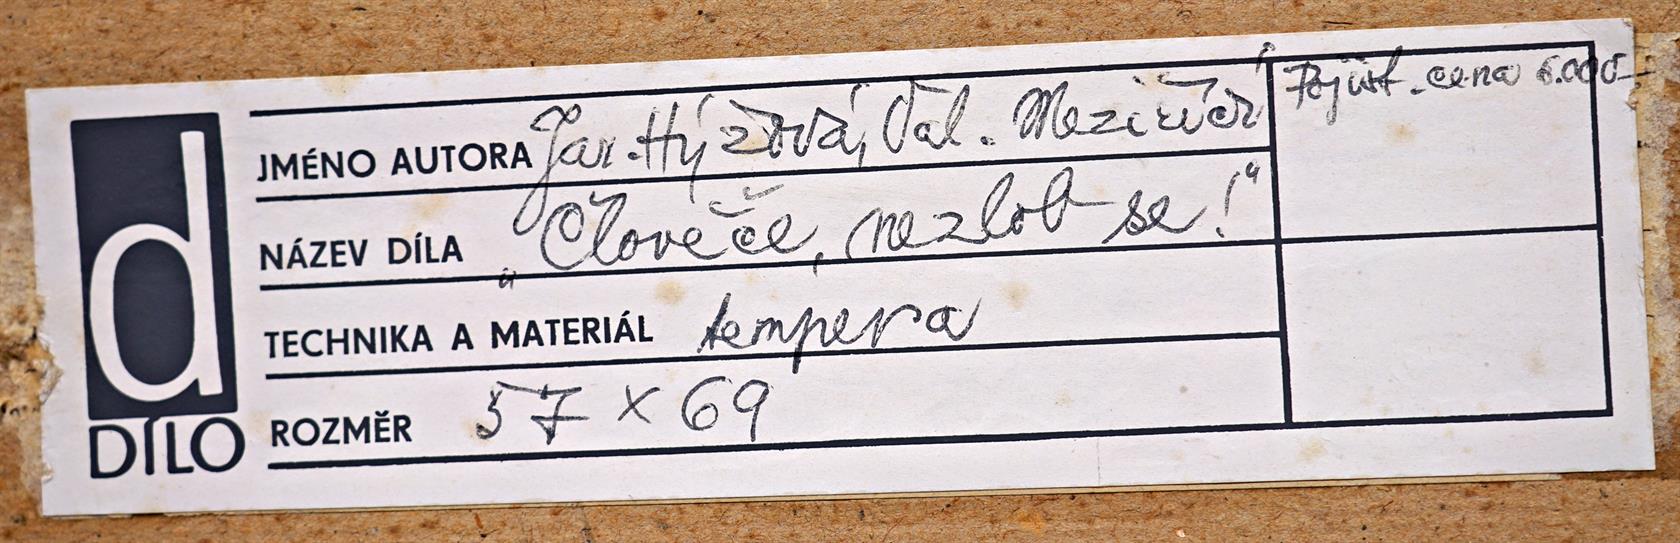 d
DÍLO
JMÉNO AUTORA Jar. Hýžová, Val. Meziříčí
NÁZEV DÍLA „Člověče, nezlob se!“
TECHNIKA A MATERIÁL tempera
ROZMĚR 57 x 69
Pojist. cena 6.000-